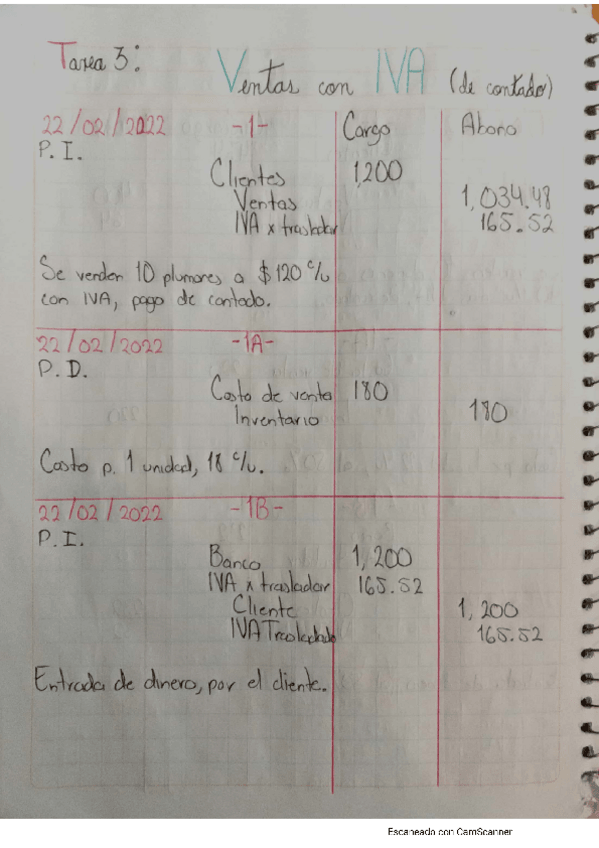 Tarea 3: Ventas con IVA (de contado)
22/02/2022 -1- Cargo Abono
P. I.
Clientes 1,200
Ventas 1,034.48
IVA x trasladar 165.52
Se venden 10 plumones a $120 c/u
con IVA, pago de contado.
22/02/2022 -1A-
P. D.
Costo de venta 180
Inventario 180
Costo p. 1 unidad, 18 c/u.
22/02/2022 -1B-
P. I.
Banco 1,200
IVA x trasladar 165.52
Cliente 1,200
IVA Trasladado 165.52
Entrada de dinero, por el cliente.
Escaneado con CamScanner